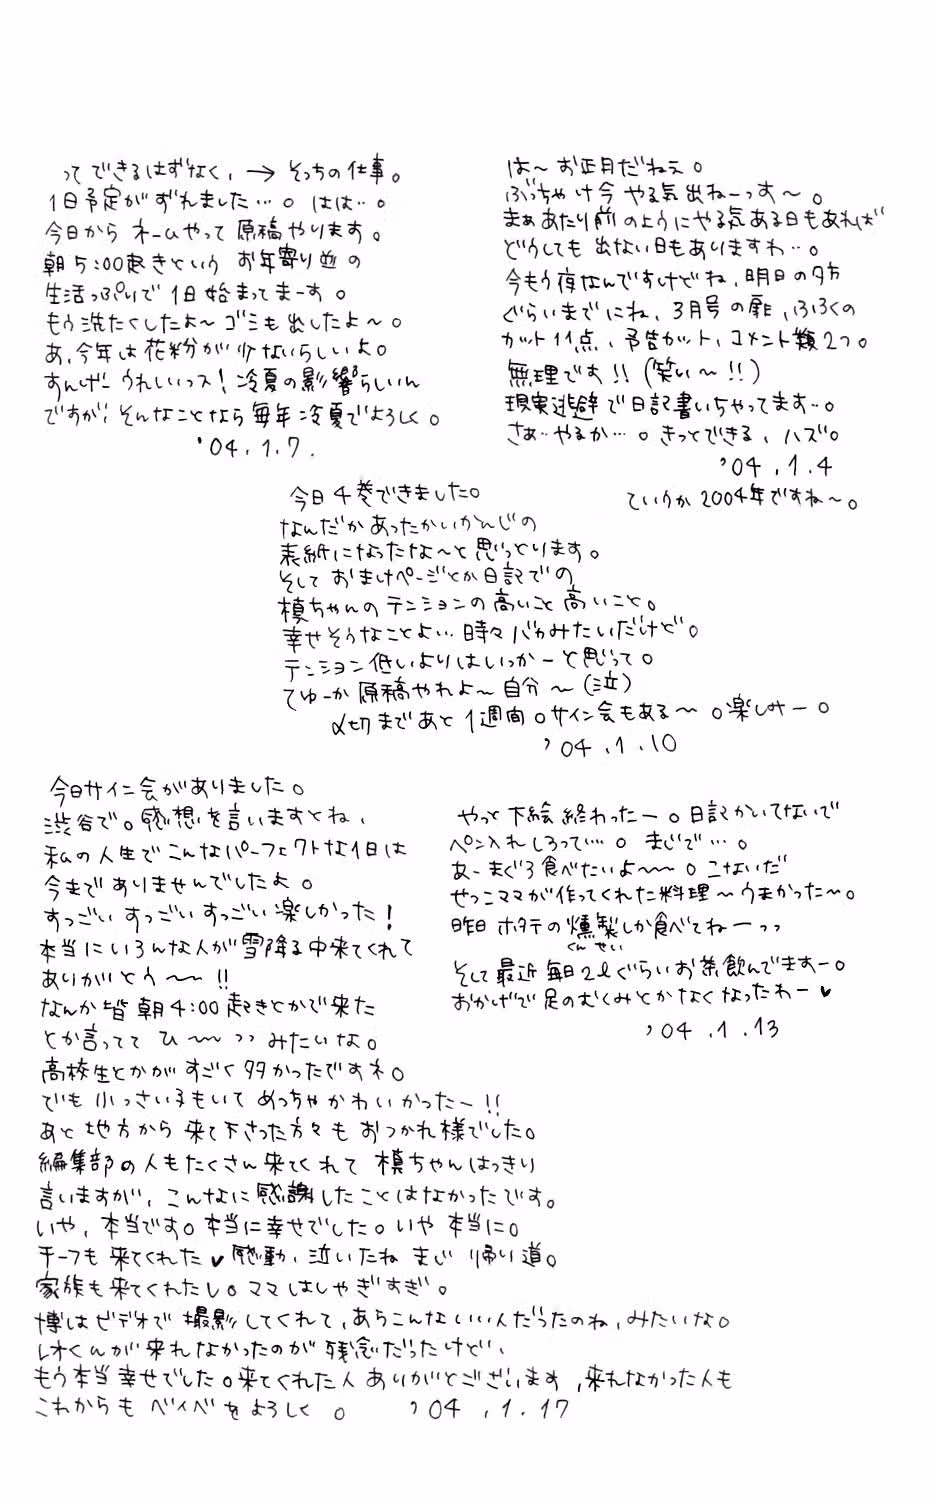 は〜お正月だねェ。
ぶっちゃけ今やる気出ねーっす〜。
まぁあたり前のようにやる気ある日もあれば
どうしても出ない日もありますわ…。
今もう夜なんですけどね、明日の夕方
ぐらいまでにね、3月号の扉、ふろくの
カット11点、予告カット、コメント類2つ。
無理です!!(笑い〜!!)
現実逃避で日記書いちゃってます…。
さぁ…やるか…。きっとできる、ハズ。
'04.1.4
ていうか2004年ですね〜。
ってできるはずなく、→そっちの仕事。
1日予定がずれました…。はは…。
今日からネームやって原稿やります。
朝5:00起きというお年寄り並の
生活っぷりで1日始まってまーす。
もう洗たくしたよ〜ゴミも出したよ〜。
あ、今年は花粉が少ないらしいよ。
すんげーうれしいっス!冷夏の影響らしいん
ですが、そんなことなら毎年冷夏でよろしく。
'04.1.7.
今日4巻できました。
なんだかあったかいかんじの
表紙になったな〜と思っとります。
そしておまけページとか日記での
槙ちゃんのテンションの高いこと高いこと。
幸せそうなことよ…時々バカみたいだけど。
テンション低いよりはいっかーと思って。
てゆーか原稿やれよ〜自分〜(泣)
〆切まであと1週間。サイン会もある〜。楽しみー。
'04.1.10
やっと下絵終わったー。日記かいてないで
ペン入れしろって…。まじで…。
あーまぐろ食べたいよ〜〜。こないだ
せっこママが作ってくれた料理〜うまかった〜。
昨日ホタテの燻製しか食べてねーっっ
くんせい
そして最近毎日2ℓぐらいお茶飲んでますー。
おかげで足のむくみとかなくなったわー♥
'04.1.13
今日サイン会がありました。
渋谷で。感想を言いますとね、
私の人生でこんなパーフェクトな1日は
今までありませんでしたよ。
すっごいすっごいすっごい楽しかった!
本当にいろんな人が雪降る中来てくれて
ありがとう〜〜!!
なんか皆朝4:00起きとかで来た
とか言ってて ひ〜〜っっみたいな。
高校生とかがすごく多かったですネ。
でも小っさい子もいてめっちゃかわいかったー!!
あと地方から来て下さった方々もおつかれ様でした。
編集部の人もたくさん来てくれて槙ちゃんはっきり
言いますが、こんなに感謝したことはなかったです。
いや、本当です。本当に幸せでした。いや本当に。
チーフも来てくれた♥感動、泣いたね まじ帰り道。
家族も来てくれたし。ママはしゃぎすぎ。
博はビデオで撮影してくれて、あらこんないい人だったのね、みたいな。
レオくんが来れなかったのが残念だったけど、
もう本当幸せでした。来てくれた人ありがとございます、来れなかった人も
これからもベイベをよろしく。 '04.1.17